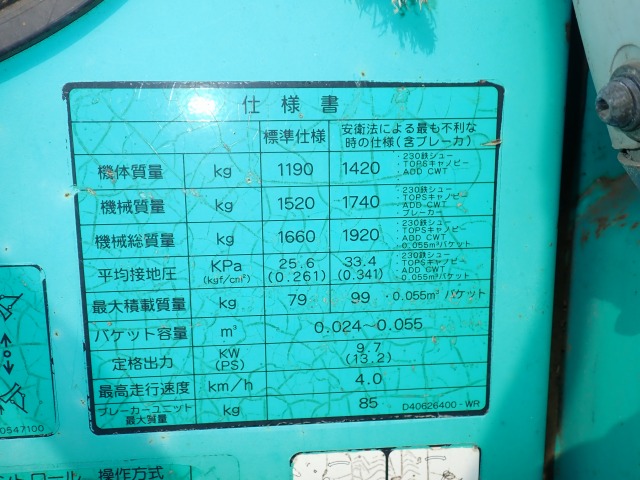 仕様書
標準仕様 安衛法による最も不利な
時の仕様(含ブレーカ)
機体質量 kg 1190 1420 ・230鉄シュー
・TOPSキャノピー
・ADD CWT
機械質量 kg 1520 1740 ・230鉄シュー
・TOPSキャノピー
・ADD CWT
・ブレーカー
機械総質量 kg 1660 1920 ・230鉄シュー
・TOPSキャノピー
・ADD CWT
・0.055m³バケット
平均接地圧 KPa 25.6 33.4 ・230鉄シュー
(kgf/cm²) (0.261) (0.341) ・TOPSキャノピー
・ADD CWT
・0.055m³バケット
最大積載質量 kg 79 99 ・0.055m³ バケット
バケット容量 m³ 0.024~0.055
定格出力 KW 9.7
(PS) (13.2)
最高走行速度 km/h 4.0
ブレーカーユニット
最大質量 kg 85 D40626400-WR
0547100
ントロール 操作方式